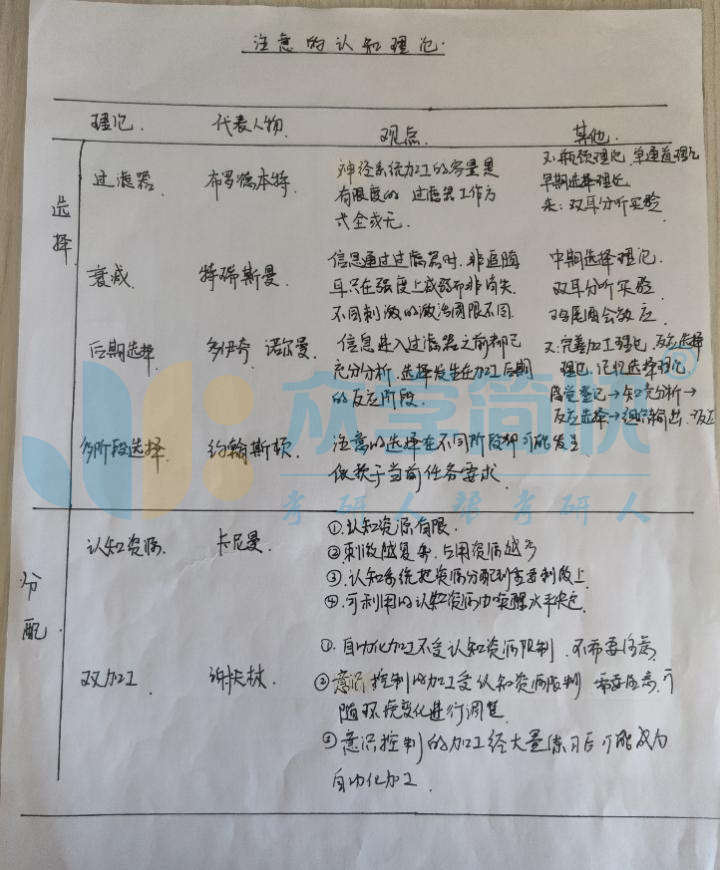 注意的认知理论.
理论. 代表人物. 观点. 其他.
选择
过滤器 布罗德本特.
神经系统加工的容量是
有限度的 过滤器工作方
式全或无.
又: 瓶颈理论, 单通道理论
早期选择理论
来: 双耳分听实验.
衰减. 特瑞斯曼.
信息通过过滤器时, 非追随
耳只在强度上减弱而非消失.
不同刺激的激活阈限不同.
中期选择理论.
双耳分听实验.
鸡尾酒会效应
后期选择 多伊奇 诺尔曼.
信息进入过滤器之前都已
充分分析, 选择发生在加工后期
的反应阶段.
又: 完善加工理论, 反应选择
理论, 记忆选择理论
感觉登记→知觉分析→
反应选择→组织输出→反应
多阶段选择 约翰斯顿.
注意的选择在不同阶段都可能发生
依赖于当前任务要求.
分配.
认知资源. 卡尼曼.
①. 认知资源有限.
②刺激越复杂, 占用资源越多
③. 认知系统把资源分配到重要刺激上
④. 可利用的认知资源由唤醒水平决定
双加工 谢夫林
①. 自动化加工不受认知资源限制, 不需要注意,
②意识控制的加工受认知资源限制 需要注意, 可
随环境变化进行调整.
③意识控制的加工经大量练习后可能成为
自动化加工.
众学简快®
考研人帮考研人